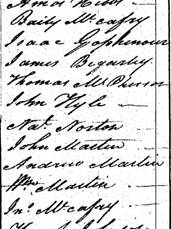 Baily McCafry
Isaac Gophenour
James Begerly
Thomas McPherson
John Kyle
Nat. Norton
John Martin
Andrew Martin
Wm Martin
Jno McCafry